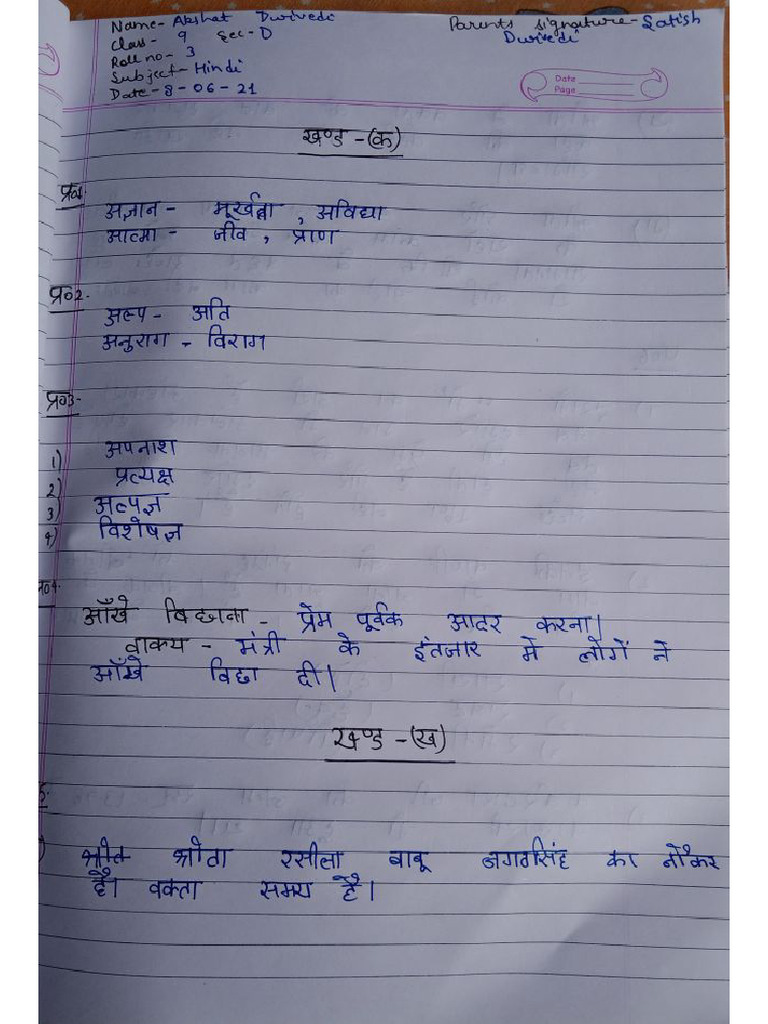 Name- Akshat Dwivedi
Parents signature- Satish Dwivedi
Class- 9 Sec-D
Roll no- 3
Subject- Hindi
Date- 8-06-21
Date
Page
खण्ड -(क)
प्र०1.
अज्ञान - मूर्खता , अविद्या
आत्मा - जीव , प्राण
प्र०2.
अल्प - अति
अनुराग - विराग
प्र०3-
1) अपनाश
2) प्रत्यक्ष
3) अल्पज्ञ
4) विशेषज्ञ
आँखे बिछाना - प्रेम पूर्वक आदर करना।
वाक्य - मंत्री के इंतजार में लोगों ने
आँखे विछा दी।
खण्ड -(ख)
श्रोता रसीला बाबू जगतसिंह का नौकर
है। वक्ता समय है।